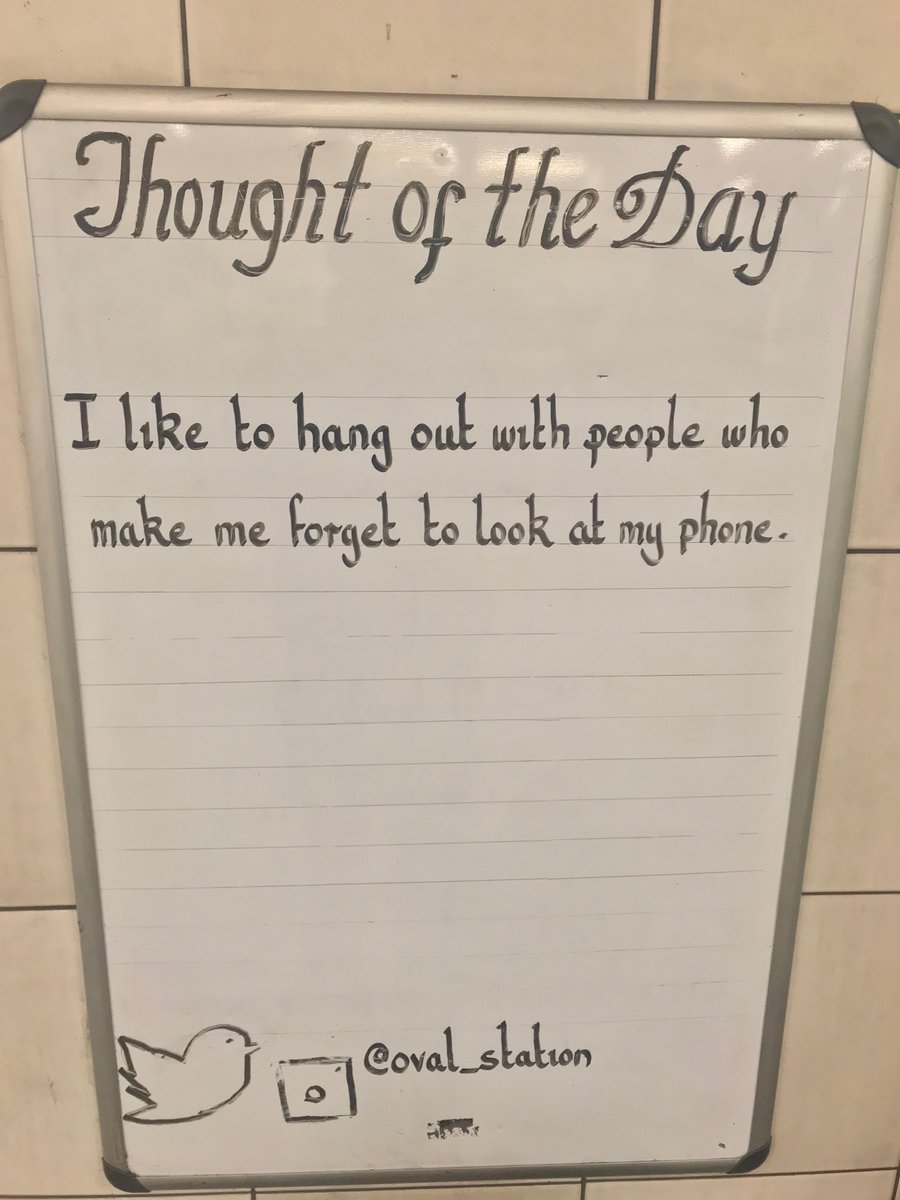 Thought of the Day
I like to hang out with people who
make me forget to look at my phone.
@oval_station